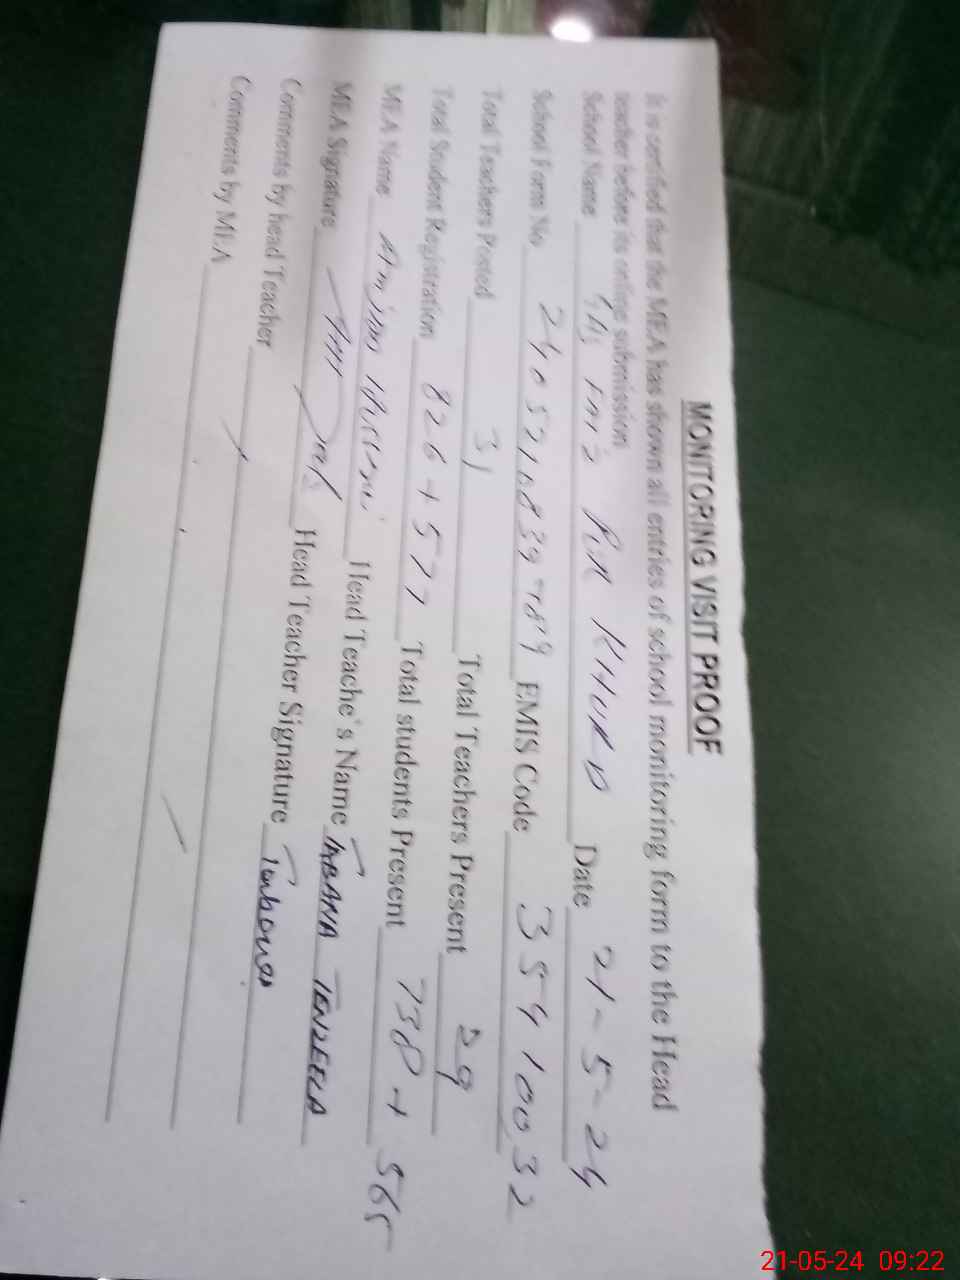 MONITORING VISIT PROOF
It is certified that the MEA has shown all entries of school monitoring form to the Head
teacher before its online submission
School Name KHURD Date 21-5-24
School Form No EMIS Code 35910032
Total Teachers Posted 31 Total Teachers Present 29
Total Student Registration 826 + 577 Total students Present 738 + 565
MEA Name Head Teache's Name TENZEELA
MEA Signature Head Teacher Signature
Comments by head Teacher
Comments by MEA
21-05-24 09:22